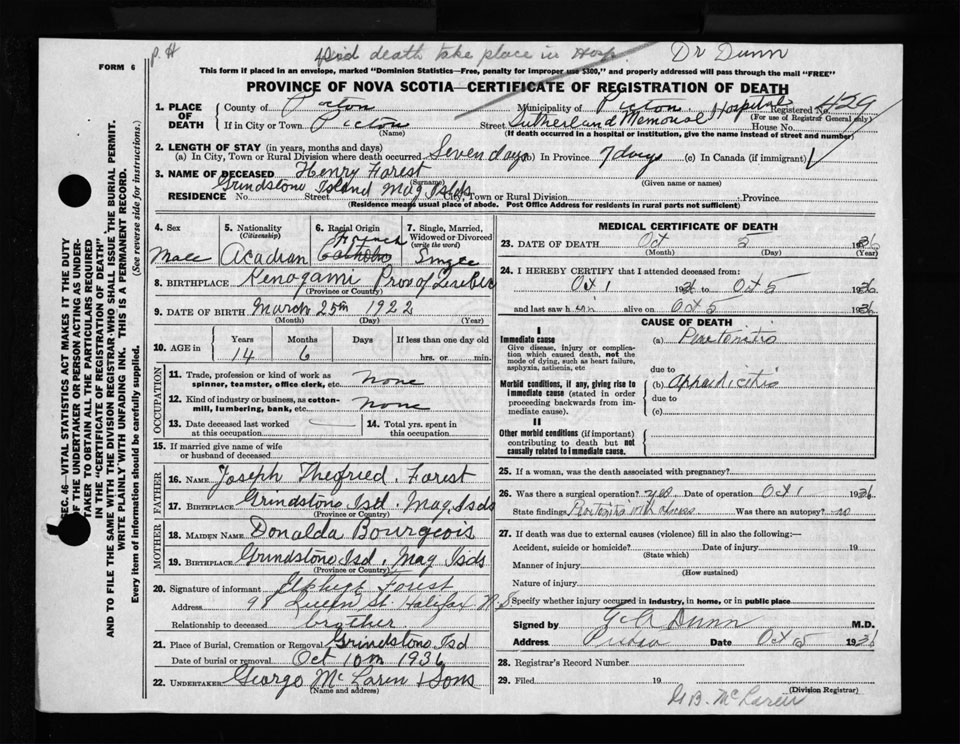 P. H Did death take place in Hosp. Dr Dunn
FORM 6
This form if placed in an envelope, marked "Dominion Statistics—Free, penalty for improper use $300," and properly addressed will pass through the mail "FREE"
PROVINCE OF NOVA SCOTIA—CERTIFICATE OF REGISTRATION OF DEATH
1. PLACE OF DEATH County of Pictou Municipality of Pictou Registered No. 429
(For use of Registrar General only)
If in City or Town Pictou Street Sutherland Memorial Hospital House No.
(Name) (If death occurred in a hospital or institution, give the name instead of street and number)
2. LENGTH OF STAY (in years, months and days)
(a) In City, Town or Rural Division where death occurred Seven days (b) In Province 7 days (c) In Canada (if immigrant)
3. NAME OF DECEASED Henry Forest
(Surname) (Given name or names)
RESIDENCE No. Street Grindstone Island Mag Islds City, Town or Rural Division Province
(Residence means usual place of abode. Post Office Address for residents in rural parts not sufficient)
4. Sex 5. Nationality 6. Racial Origin 7. Single, Married, Widowed or Divorced
(Citizenship) (write the word)
Male Acadian French Catholic Single
8. BIRTHPLACE Kenogami Prov of Quebec
(Province or Country)
9. DATE OF BIRTH March 25th 1922
(Month) (Day) (Year)
10. AGE in Years Months Days If less than one day old
14 6 hrs. or min.
OCCUPATION
11. Trade, profession or kind of work as spinner, teamster, office clerk, etc. none
12. Kind of industry or business, as cotton-mill, lumbering, bank, etc. none
13. Date deceased last worked at this occupation
14. Total yrs. spent in this occupation
15. If married give name of wife or husband of deceased
FATHER
16. NAME Joseph Forest
17. BIRTHPLACE Grindstone Isld. Mag Isds
(Province or Country)
MOTHER
18. MAIDEN NAME Donalda Bourgeois
19. BIRTHPLACE Grindstone Isd. Mag Isds
(Province or Country)
20. Signature of informant Forest
Address 98 Queen St. Halifax N.S
Relationship to deceased brother
21. Place of Burial, Cremation or Removal Grindstone Isd
Date of burial or removal Oct 10th 1936
22. UNDERTAKER George McLaren & Sons
(Name and address)
MEDICAL CERTIFICATE OF DEATH
23. DATE OF DEATH Oct 5 1936
(Month) (Day) (Year)
24. I HEREBY CERTIFY that I attended deceased from:
Oct 1 1936 to Oct 5 1936
and last saw him alive on Oct 5 1936
CAUSE OF DEATH
I
Immediate cause (a) Peritonitis
Give disease, injury or complication which caused death, not the mode of dying, such as heart failure, asphyxia, asthenia, etc
due to
Morbid conditions, if any, giving rise to immediate cause (stated in order proceeding backwards from immediate cause).
(b) Appendicitis
due to
(c)
II
Other morbid conditions (if important) contributing to death but not causally related to immediate cause.
25. If a woman, was the death associated with pregnancy?
26. Was there a surgical operation? yes Date of operation Oct 1 1936
State findings Peritonitis with Was there an autopsy? no
27. If death was due to external causes (violence) fill in also the following:—
Accident, suicide or homicide? Date of injury 19
(State which)
Manner of injury
(How sustained)
Nature of injury
Specify whether injury occurred in industry, in home, or in public place
Signed by G A Dunn M.D.
Address Pictou Date Oct 5 1936
28. Registrar's Record Number
29. Filed 19
(Division Registrar)
McLaren
SEC. 46—VITAL STATISTICS ACT MAKES IT THE DUTY
OF THE UNDERTAKER OR PERSON ACTING AS UNDER-
TAKER TO OBTAIN ALL THE PARTICULARS REQUIRED
IN THE "CERTIFICATE OF REGISTRATION OF DEATH"
AND TO FILE THE SAME WITH THE DIVISION REGISTRAR WHO SHALL ISSUE THE BURIAL PERMIT.
WRITE PLAINLY WITH UNFADING INK. THIS IS A PERMANENT RECORD.
Every item of information should be carefully supplied. (See reverse side for instructions.)